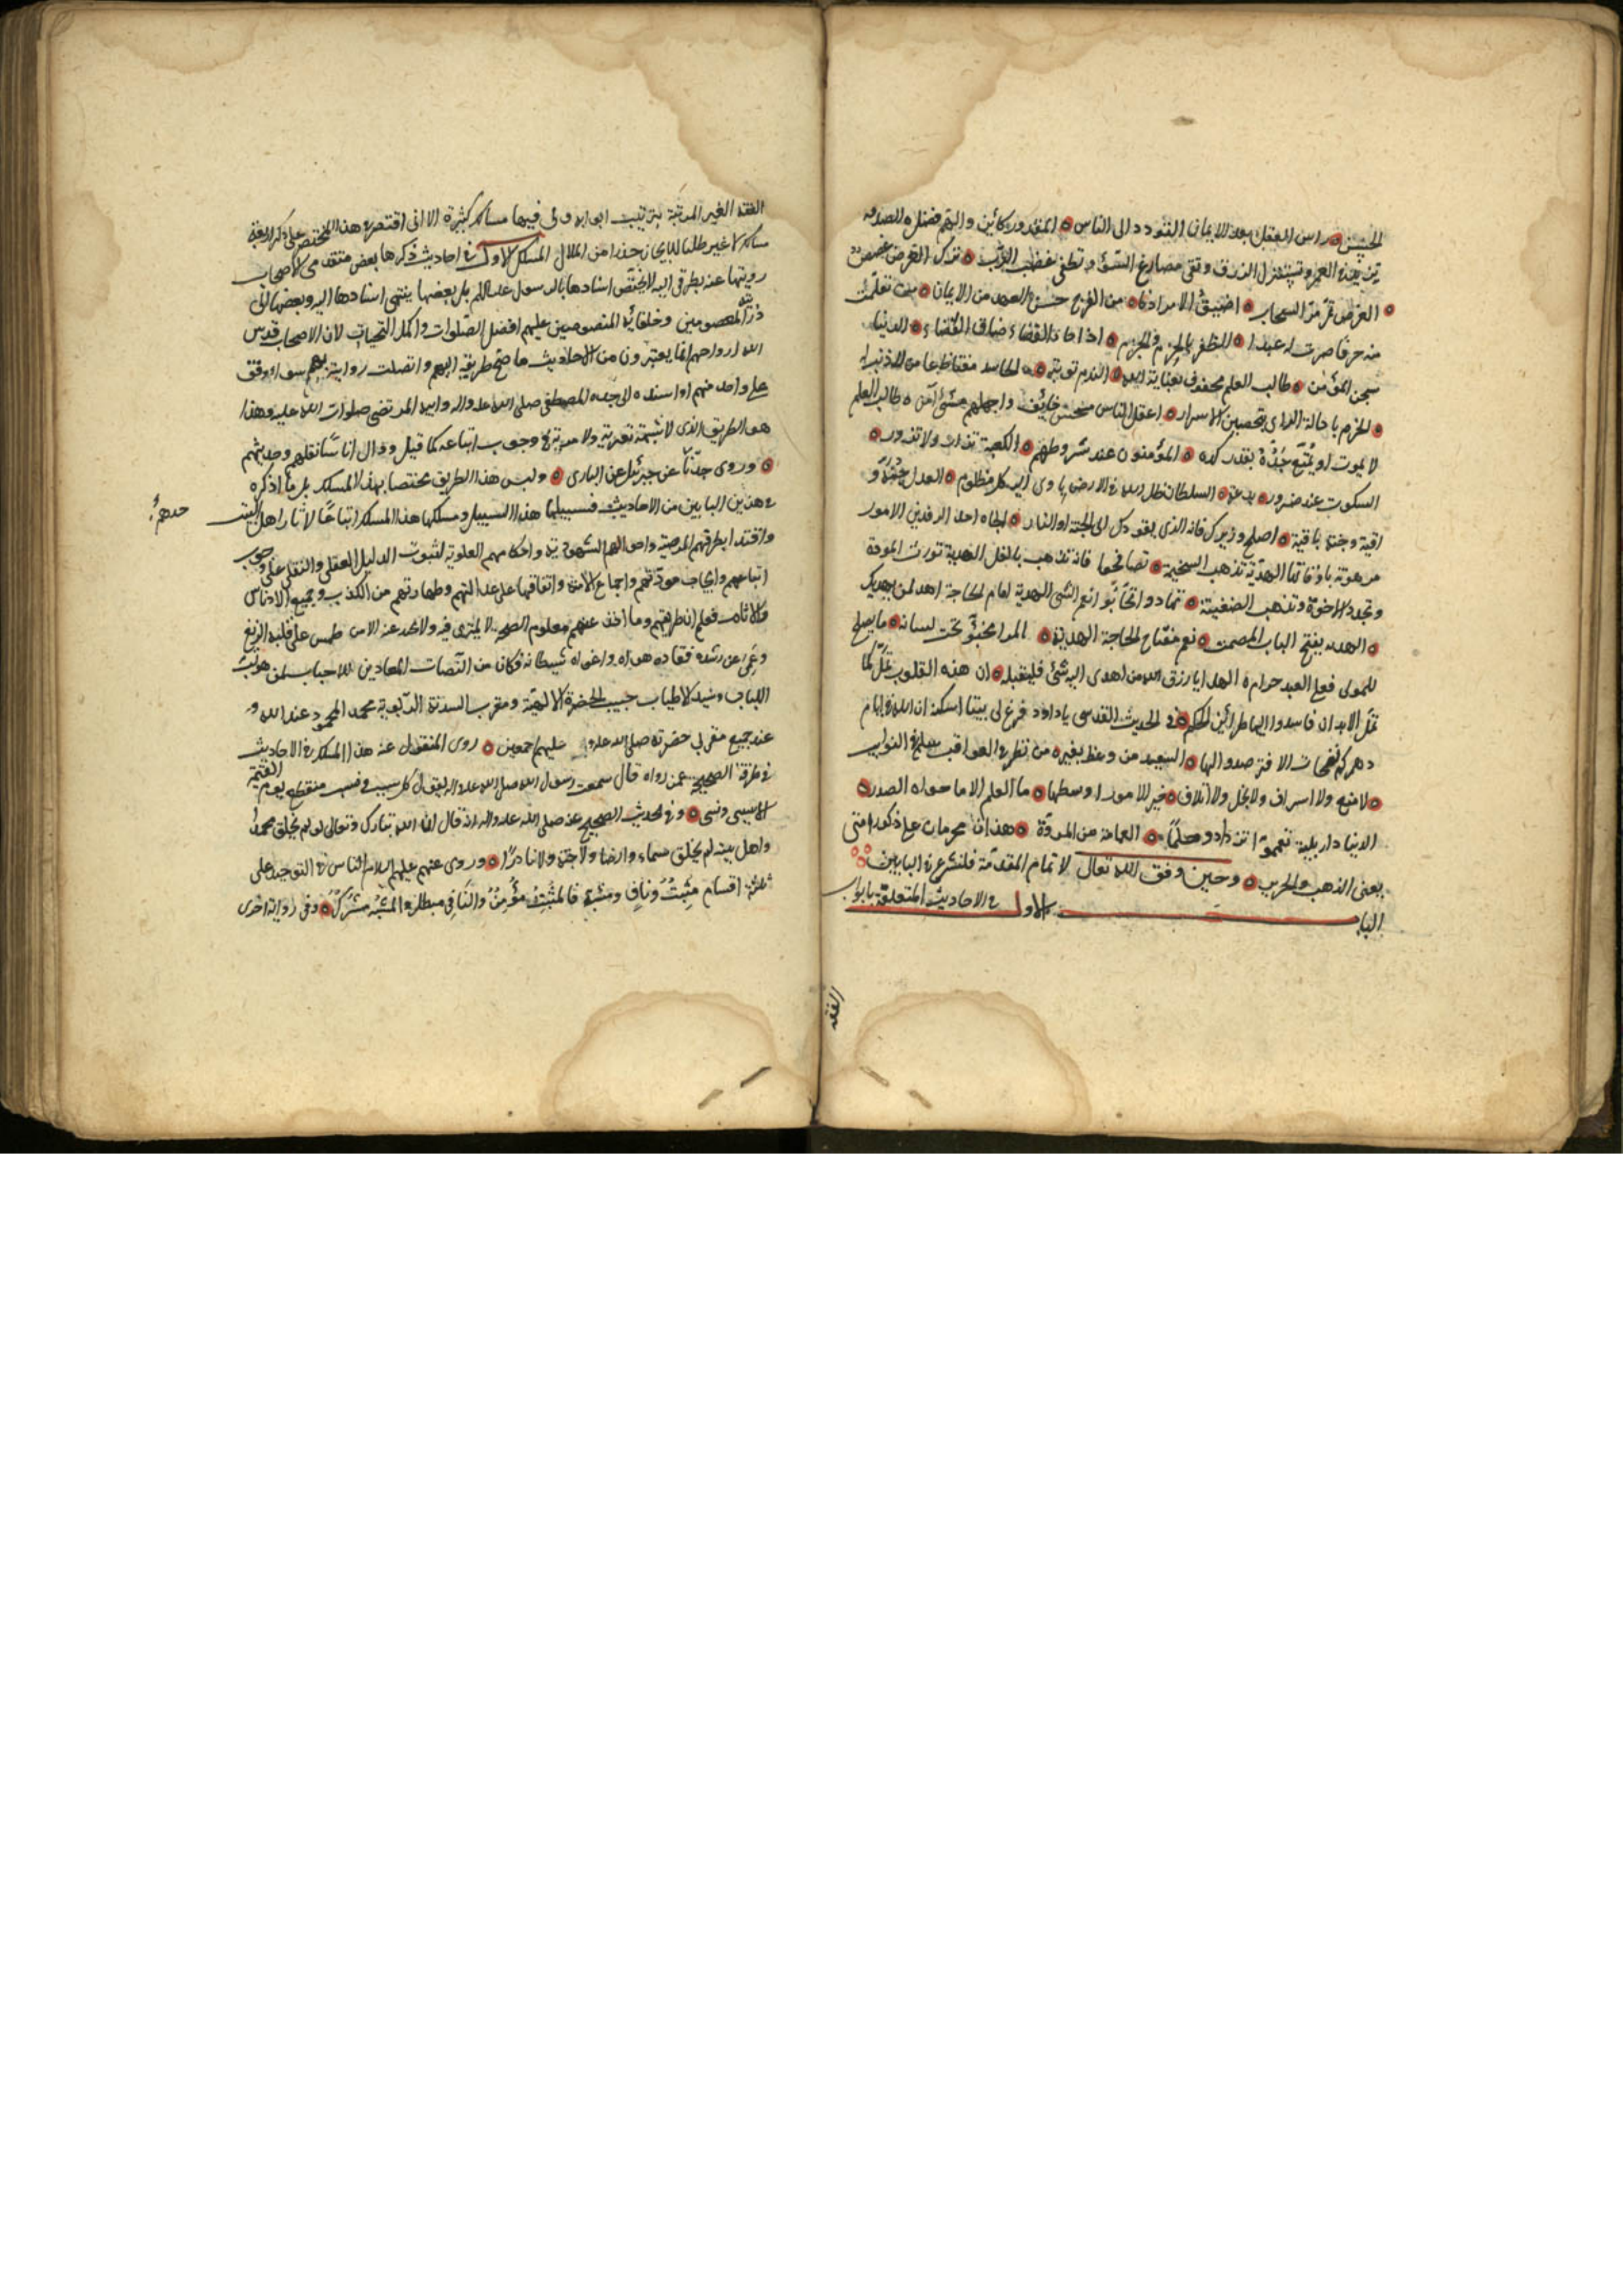 الحبيس راس العقل بعد الايمان التودد الى الناس المقدور كائن والهم فضل الصدقه
تزيد في العمر وتستنزل الرزق وتقى مصارع السوء وتطفى غضب الرب ترك الفرص غصص
الفرص تمر مر السحاب اضيق الامر ادناه من الفرج حسن العهد من الايمان من تعلمت
منه حرفا صرت له عبدا الظفر بالجزم والحزم اذا جاء القضاء ضاق الفضاء الدنيا
سجن المؤمن طالب العلم محفوف بعناية الله الندم توبة الحاسد مغتاظ على من لا ذنب له
الحزم باجالة الراى بتحصين الاسرار اعقل الناس محسن خايف واجهلهم مسئ آمن طالب العلم
لا يموت او يمتع جده بقدر كده المؤمنون عند شروطهم الكعبة تزار ولا تزور
السكوت عند ضرور بدعة السلطان ظل الله فى الارض ياوى اليه كل مظلوم العدل جنة و
اقية وجنة باقية اصلح وزيرك فانه الذى يقودك الى الجنة او النار الجاه احد الرفدين الامور
مرهونة باوقاتها الهدية تذهب السخيمة تصافحوا فانه تذهب بالغل الهدية تورث المودة
وتجدد الاخوة وتذهب الضغينة تهادوا تحابوا نعم الشئ الهدية امام الحاجة اهد لمن يهديك
الهديه يفتح الباب المصمت نعم مفتاح الحاجة الهدية المرء مخبو تحت لسانه ما يصلح
للمولى فعلى العبد حرام الهدايا رزق الله من اهدى اليه شئ فليقبله ان هذه القلوب تمل كما
تمل الابدان فاهدوا اليها طرائف الحكم فى الحديث القدسى يا داود فرغ لى بيتا اسكنه ان لله فى ايام
دهركم نفحات الا فترصدوا لها السعيد من وعظ بغيره من نظر فى العواقب سلم فى النوايب
لا منع ولا اسراف ولا بخل ولا اتلاف خير الامور اوسطها ما العلم الا ما حواه الصدر
الدنيا دار بلية تعمموا تزدادوا حلما العمامة من المروة هذان محرمان على ذكور امتى
يعنى الذهب والحرير وحين وفق الله تعالى لاتمام المقدمة فلنشرع فى البابين
الباب الاول فى الاحاديث المتعلقة بابواب
الفقه
الفقه الغير المرتبة بترتيب ابوابه وفى فيها مسالك كثيرة الا انى اقتصر فى هذا المختصر على ذكر اربعة
مسالك لا غير طلبا للايجاز حذرا من الملال المسلك الاول فى احاديث ذكرها بعض متقدمى الاصحاب
رويتها عنه بطرقى اليه لا يختص اسنادها بالرسول عليه السلم بل بعضها ينتهى اسنادها اليه وبعضها الى
ذريته المعصومين وخلفائه المنصوصين عليهم افضل الصلوات واكمل التحيات لان الاصحاب قدس
الله ارواحهم انما يعتبرون من الاحاديث ما صح طريقه اليهم واتصلت روايته بهم سواء وقف
على واحد منهم او اسنده الى جده المصطفى صلى الله عليه واله وابيه المرتضى صلوات الله عليه وهذا
هو الطريق الذى لا شبهة تعتريه ولا مرية فى وجوب اتباعه كما قيل ووال اناسا نقلهم وحديثهم
وروى جدنا عن جبرئيل عن البارى وليس هذا الطريق مختصا بهذا المسلك بل ما اذكره
فى هذين البابين من الاحاديث فسبيلها هذا السبيل ومسلكها هذا المسلك اتباعا لاثار اهل البيت
واقتداء بطرقهم المرضية واحوالهم المشهودية واحكامهم العلوية لثبوت الدليل العقلى والنقلى على وجوب
اتباعهم وايجاب مودتهم واجماع الامة واتفاقها على عدالتهم وطهارتهم من الكذب وجميع الادناس
والاثام فعلم ان طريقتهم وما اخذ عنهم معلوم الصحة لا يمترى فيه ولا يحد عنه الا من طمس على قلبه الزيغ
وعمى عن رشده فقاده هواه واغواه شيطانه فكان من النصاب المعادين للاحباب لمن هو لب
اللباب وسيد الاطياب حبيب الحضرة الالهية ومقرب السدنة الربوبية محمد المحمود عند الله و
عند جميع مقربى حضرته صلى الله عليه وعليهم اجمعين روى المنقول عنه هذا المسلك فى الاحاديث
فى طرقه الصحيحة عمن رواه قال سمعت رسول الله صلى الله عليه واله يقول كل سبب ونسب منقطع يوم القيمة
الا سببى ونسبى وفى الحديث الصحيح عنه صلى الله عليه واله انه قال ان الله تبارك وتعالى لو لم يخلق محمدا
واهل بيته لم يخلق سماء ولا ارضا ولا جنة ولا نارا وروى عنهم عليهم السلام الناس فى التوحيد على
ثلثة اقسام مثبت وناف ومشبه فالمثبت مؤمن والنافى مبطل والمشبه مشرك وفى رواية اخرى